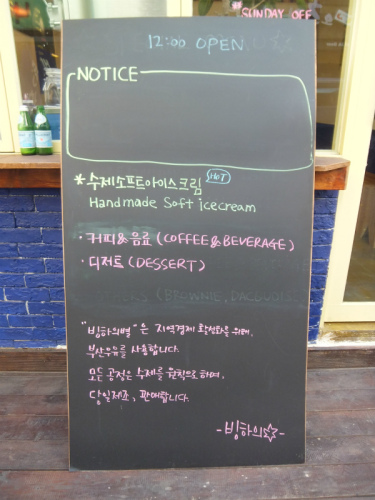 SUNDAY OFF
12:00 OPEN
NOTICE
*수제소프트아이스크림 HOT
Handmade Soft icecream
·커피&음료 (COFFEE&BEVERAGE)
·디저트 (DESSERT)
(BROWNIE, DACQUOISE
"빙하의별" 은 지역경제 활성화를 위해,
부산우유를 사용합니다.
모든 공정은 수제를 원칙으로 하며,
당일제조, 판매합니다.
-빙하의☆-